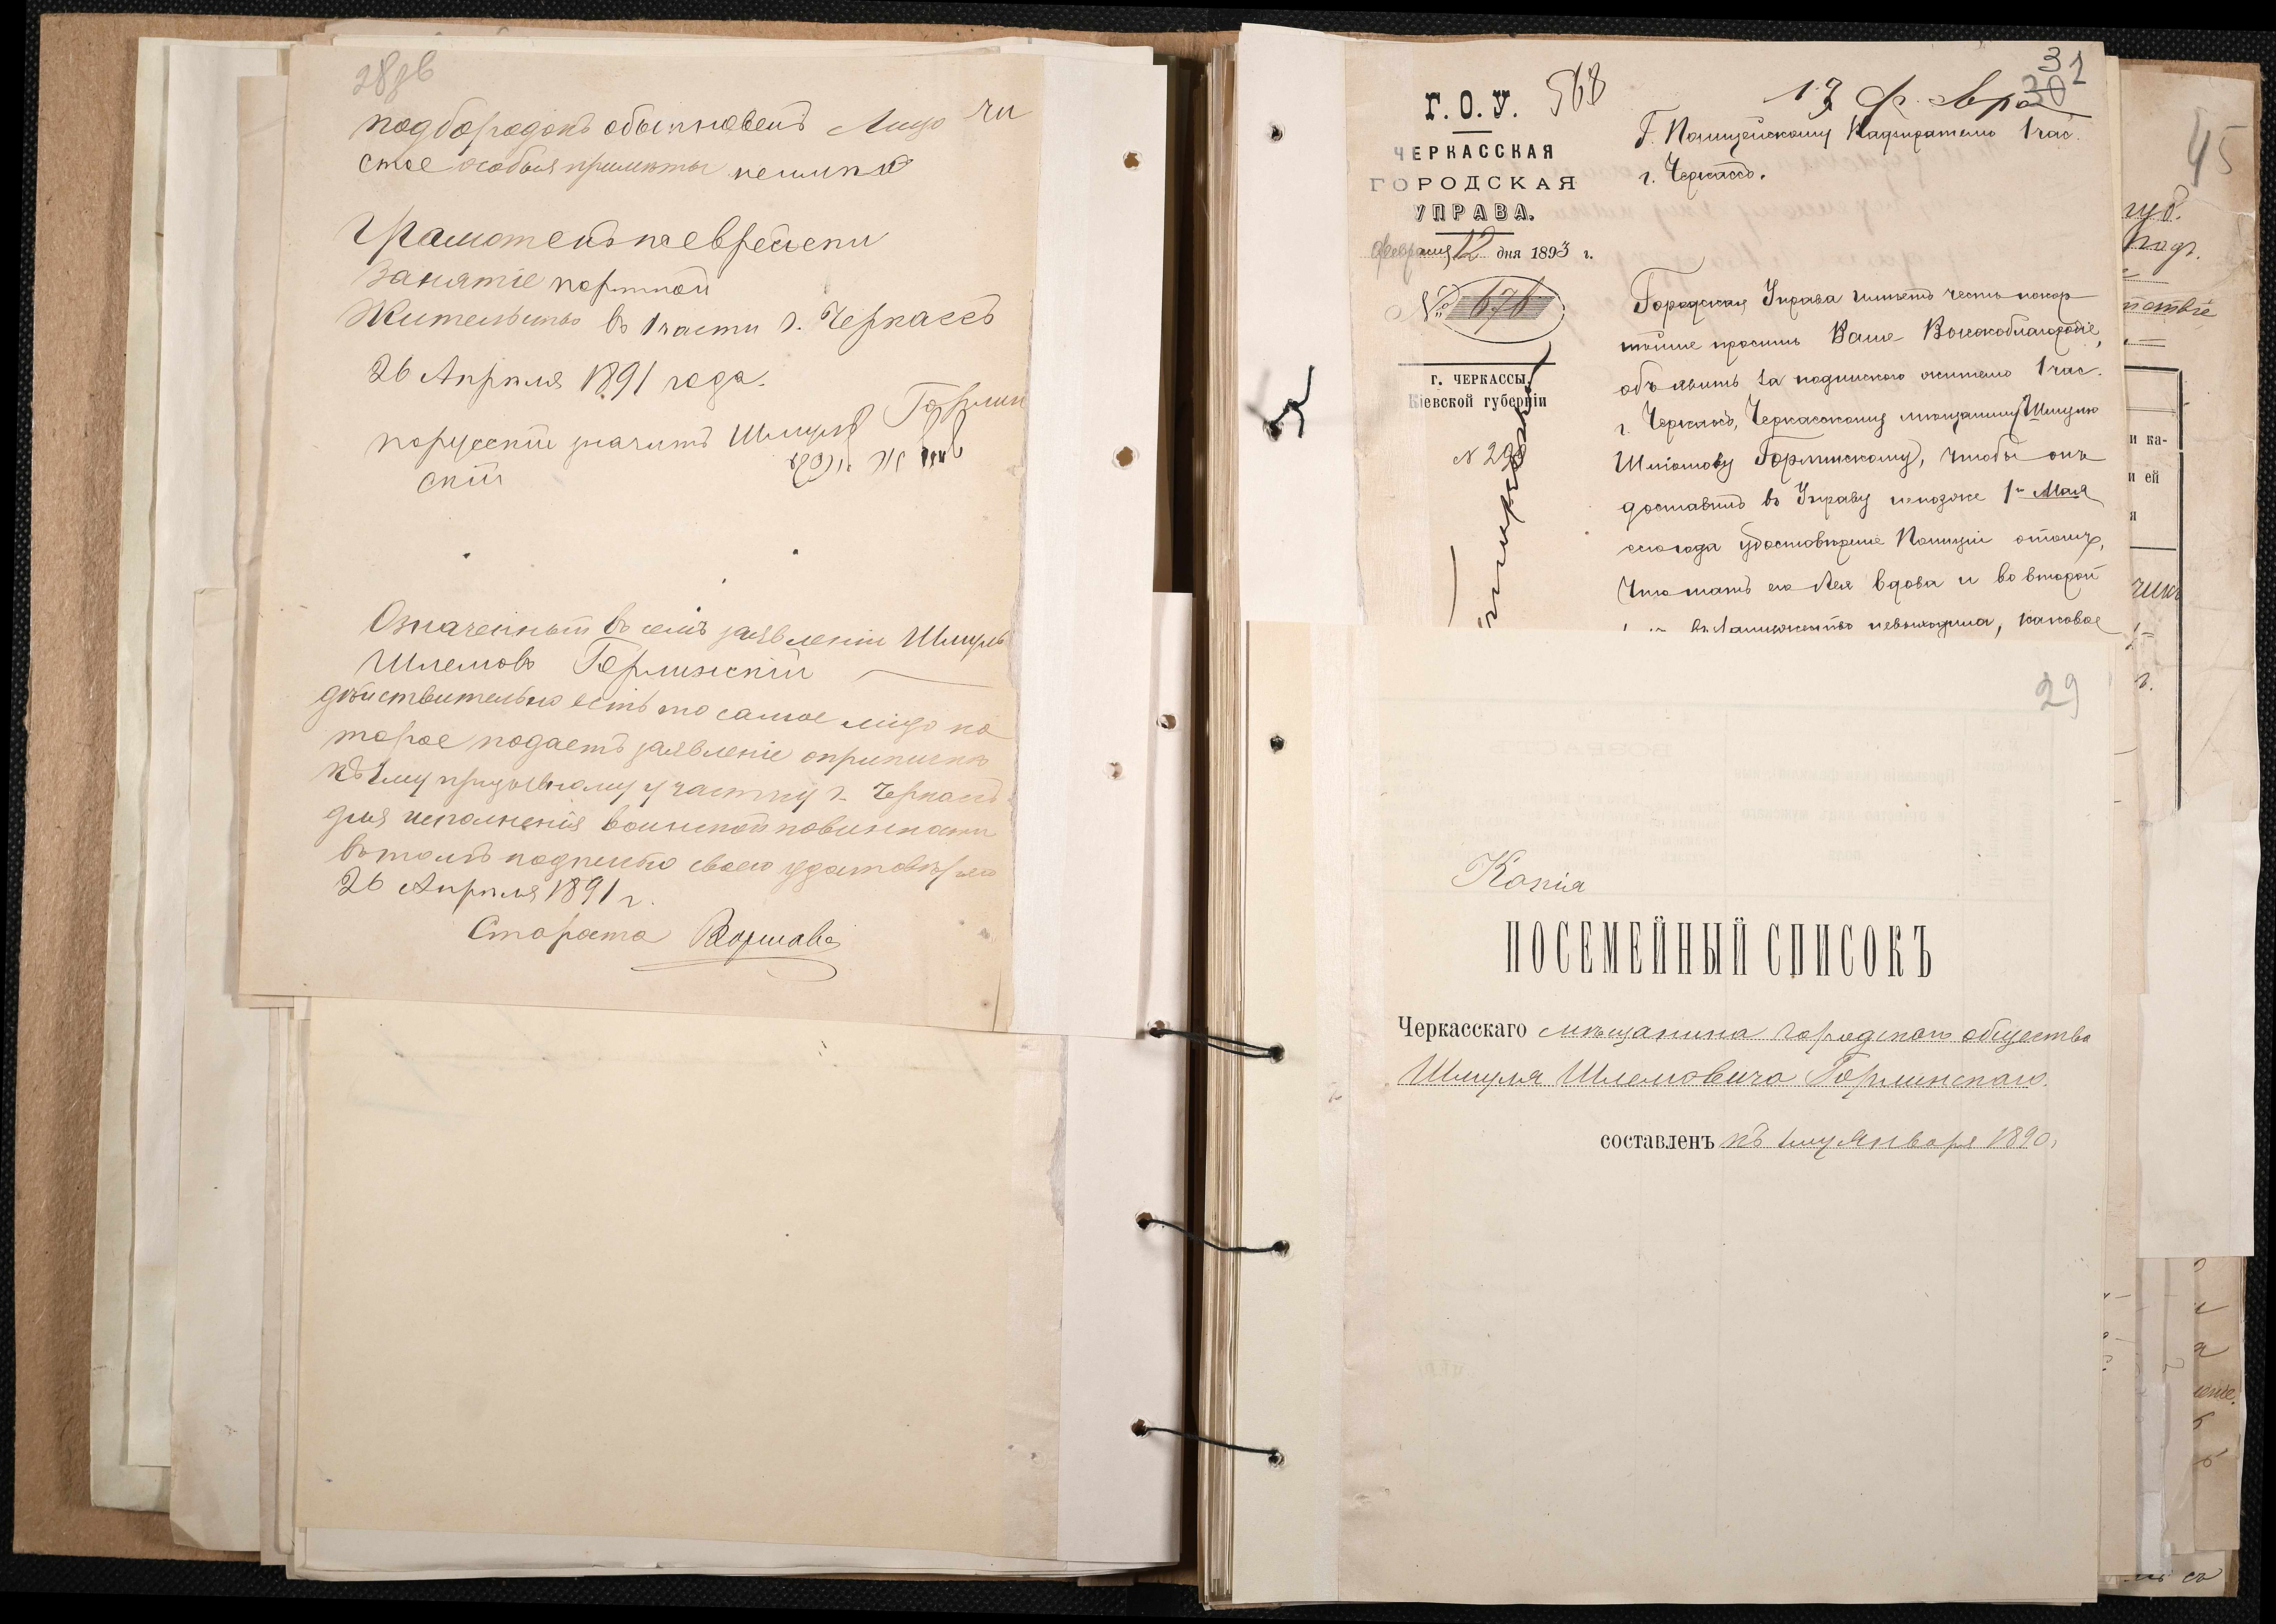 28 об
подбородокъ обыкновенъ Лицо чи
стое особыя примѣты неимѣе
Грамотенъ по еврейски
Занятіе портной
Жительство въ 1 части г. Черкассъ
26 Апрѣля 1891 года.
порусскіи значитъ Шмуль Горлин
скій
Означенный въ семъ заявленіи Шмуль
Шлемовъ Горлинскій
дѣйствительно есть то самое лицо ко
торое подаетъ заявленіе оприпискѣ
къ 1му призывному участку г. Черкассъ
для исполненія воинской повинности
въ томъ подписью своею удостовѣряю
26 Апрѣля 1891 г.
Староста
Г. О. У. 568
ЧЕРКАССКАЯ
ГОРОДСКАЯ
УПРАВА.
февраля 12 дня 1893 г.
№ 676
г. ЧЕРКАССЫ,
Кіевской губерніи
N 29
31
30
Г. Полицейскому Надзирателю 1 час.
г. Черкассъ.
Городская Управа имѣетъ честь покор
нѣйше просить Ваше Высокоблагородіе,
объявить за подпискою жителю 1 час.
г. Черкассъ, Черкасскому мѣщанину Шмулю
Шліомову Горлинскому, чтобы онъ
доставилъ въ Управу непозже 1го Мая
сего года удостовѣреніе Полиціи отомъ,
что мать его Лея вдова и во второй
невыходила, каковое
29
Копія
ПОСЕМЕЙНЫЙ СПИСОКЪ
Черкасскаго мѣщанина городского общества
Шмуля Шлемовича Горлинскаго.
составленъ къ 1му Января 1890,
45
губ.
подъ.
и ка-
и ей
я